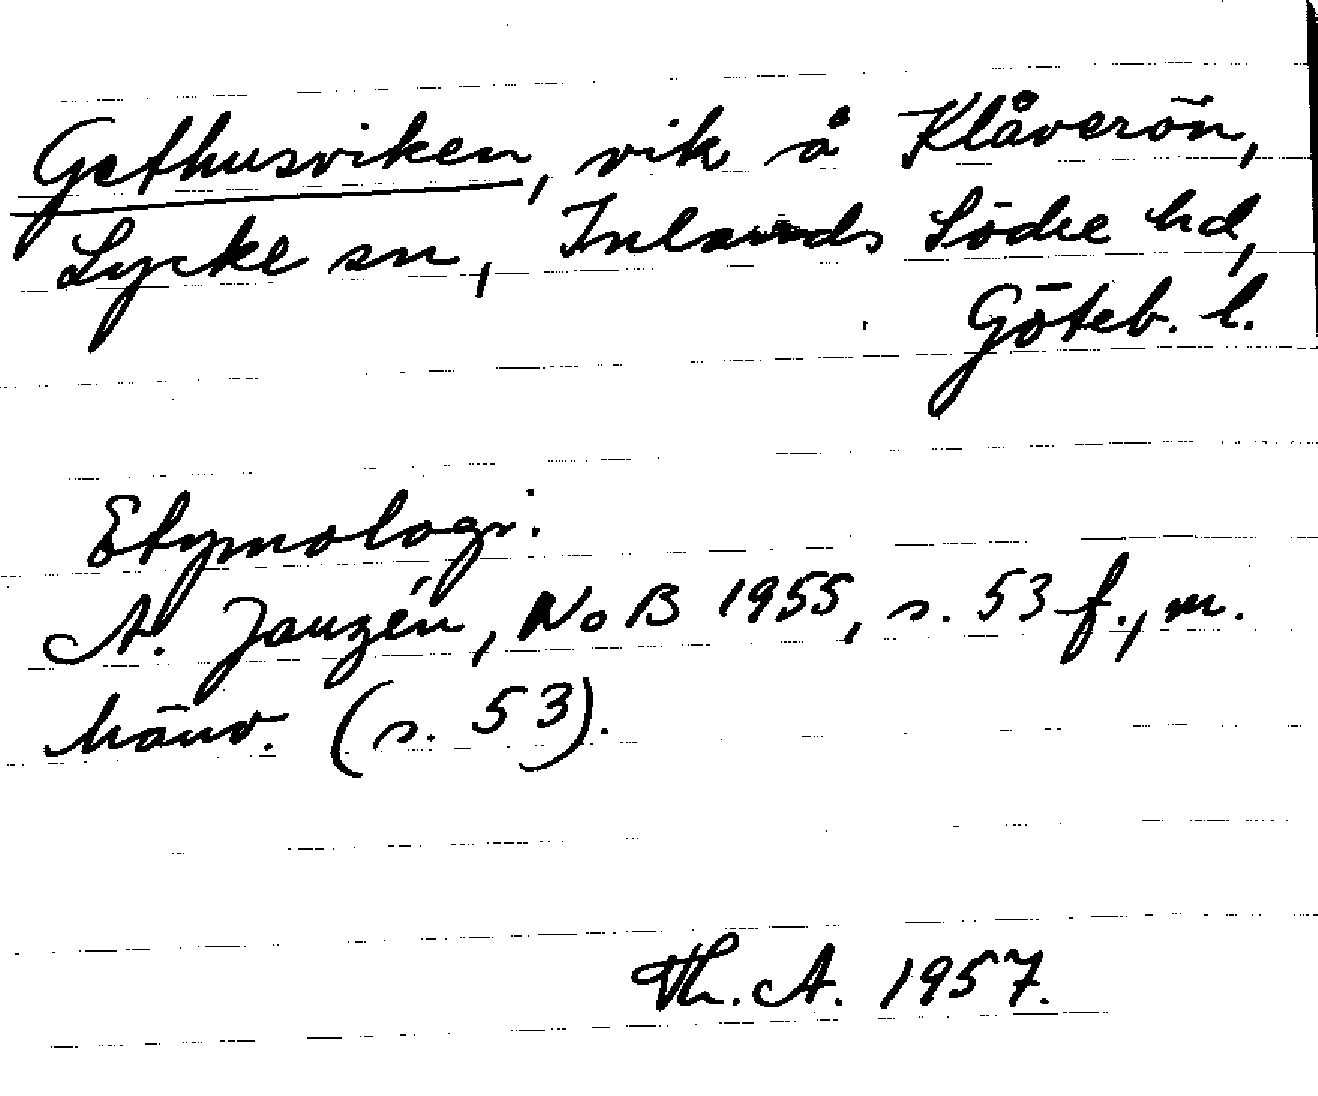 Gethusviken, vik å Klåverön,
Lycke sn, Inlands Södre hd,
Göteb. l.
Etymologi:
A. Janzén, NoB 1955, s. 53 f., m.
hänv. (s. 53).
Th. A. 1957.